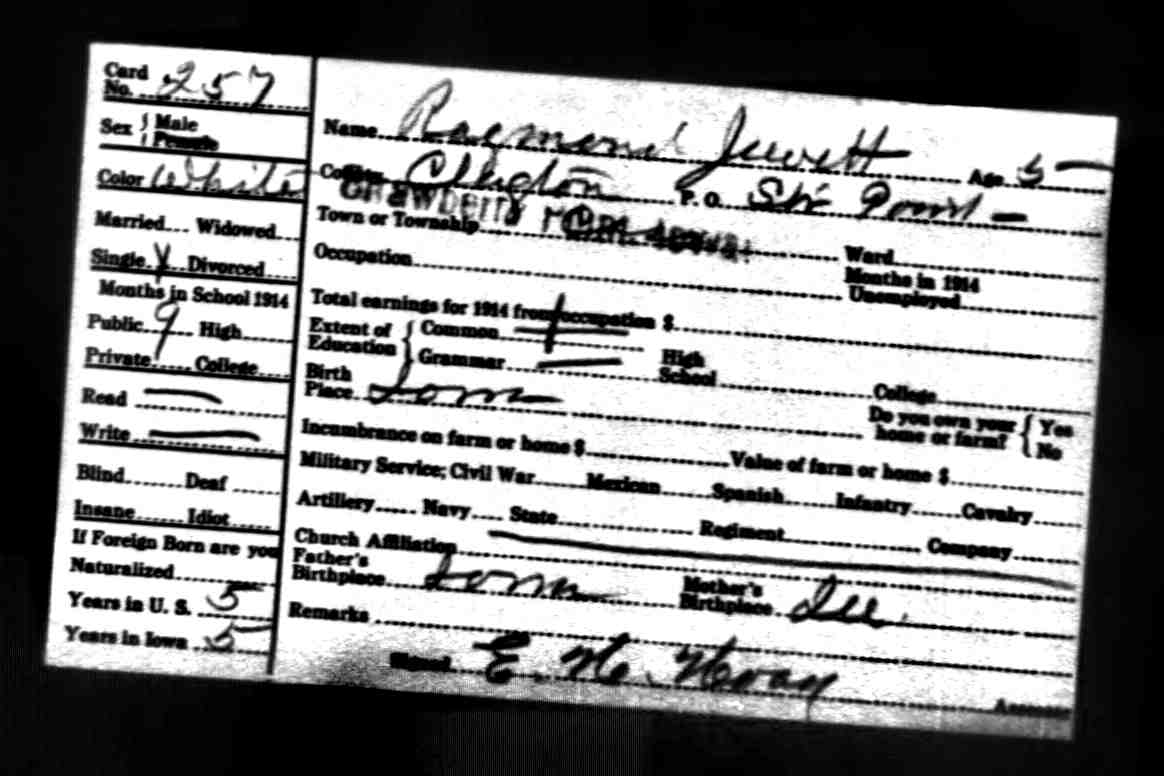 Card No. 257
Sex Male Female
Color White
Married Widowed
Single Y Divorced
Months in School 1914
Public 9 High
Private College
Read —
Write —
Blind Deaf
Insane Idiot
If Foreign Born are you
Naturalized
Years in U. S. 5
Years in Iowa 5
Name Raymond Jewett Age 5 —
County P. O.
Town or Township Ward
Occupation Months in 1914 Unemployed
Total earnings for 1914 from occupation $
Extent of Education Common
Grammar — High School College
Birth Place Iowa Do you own your home or farm? Yes No
Incumbrance on farm or home $ Value of farm or home $
Military Service; Civil War Mexican Spanish Infantry Cavalry
Artillery Navy State Regiment Company
Church Affiliation
Father's Birthplace Iowa Mother's Birthplace Ill.
Remarks
Signed E. H. Assessor